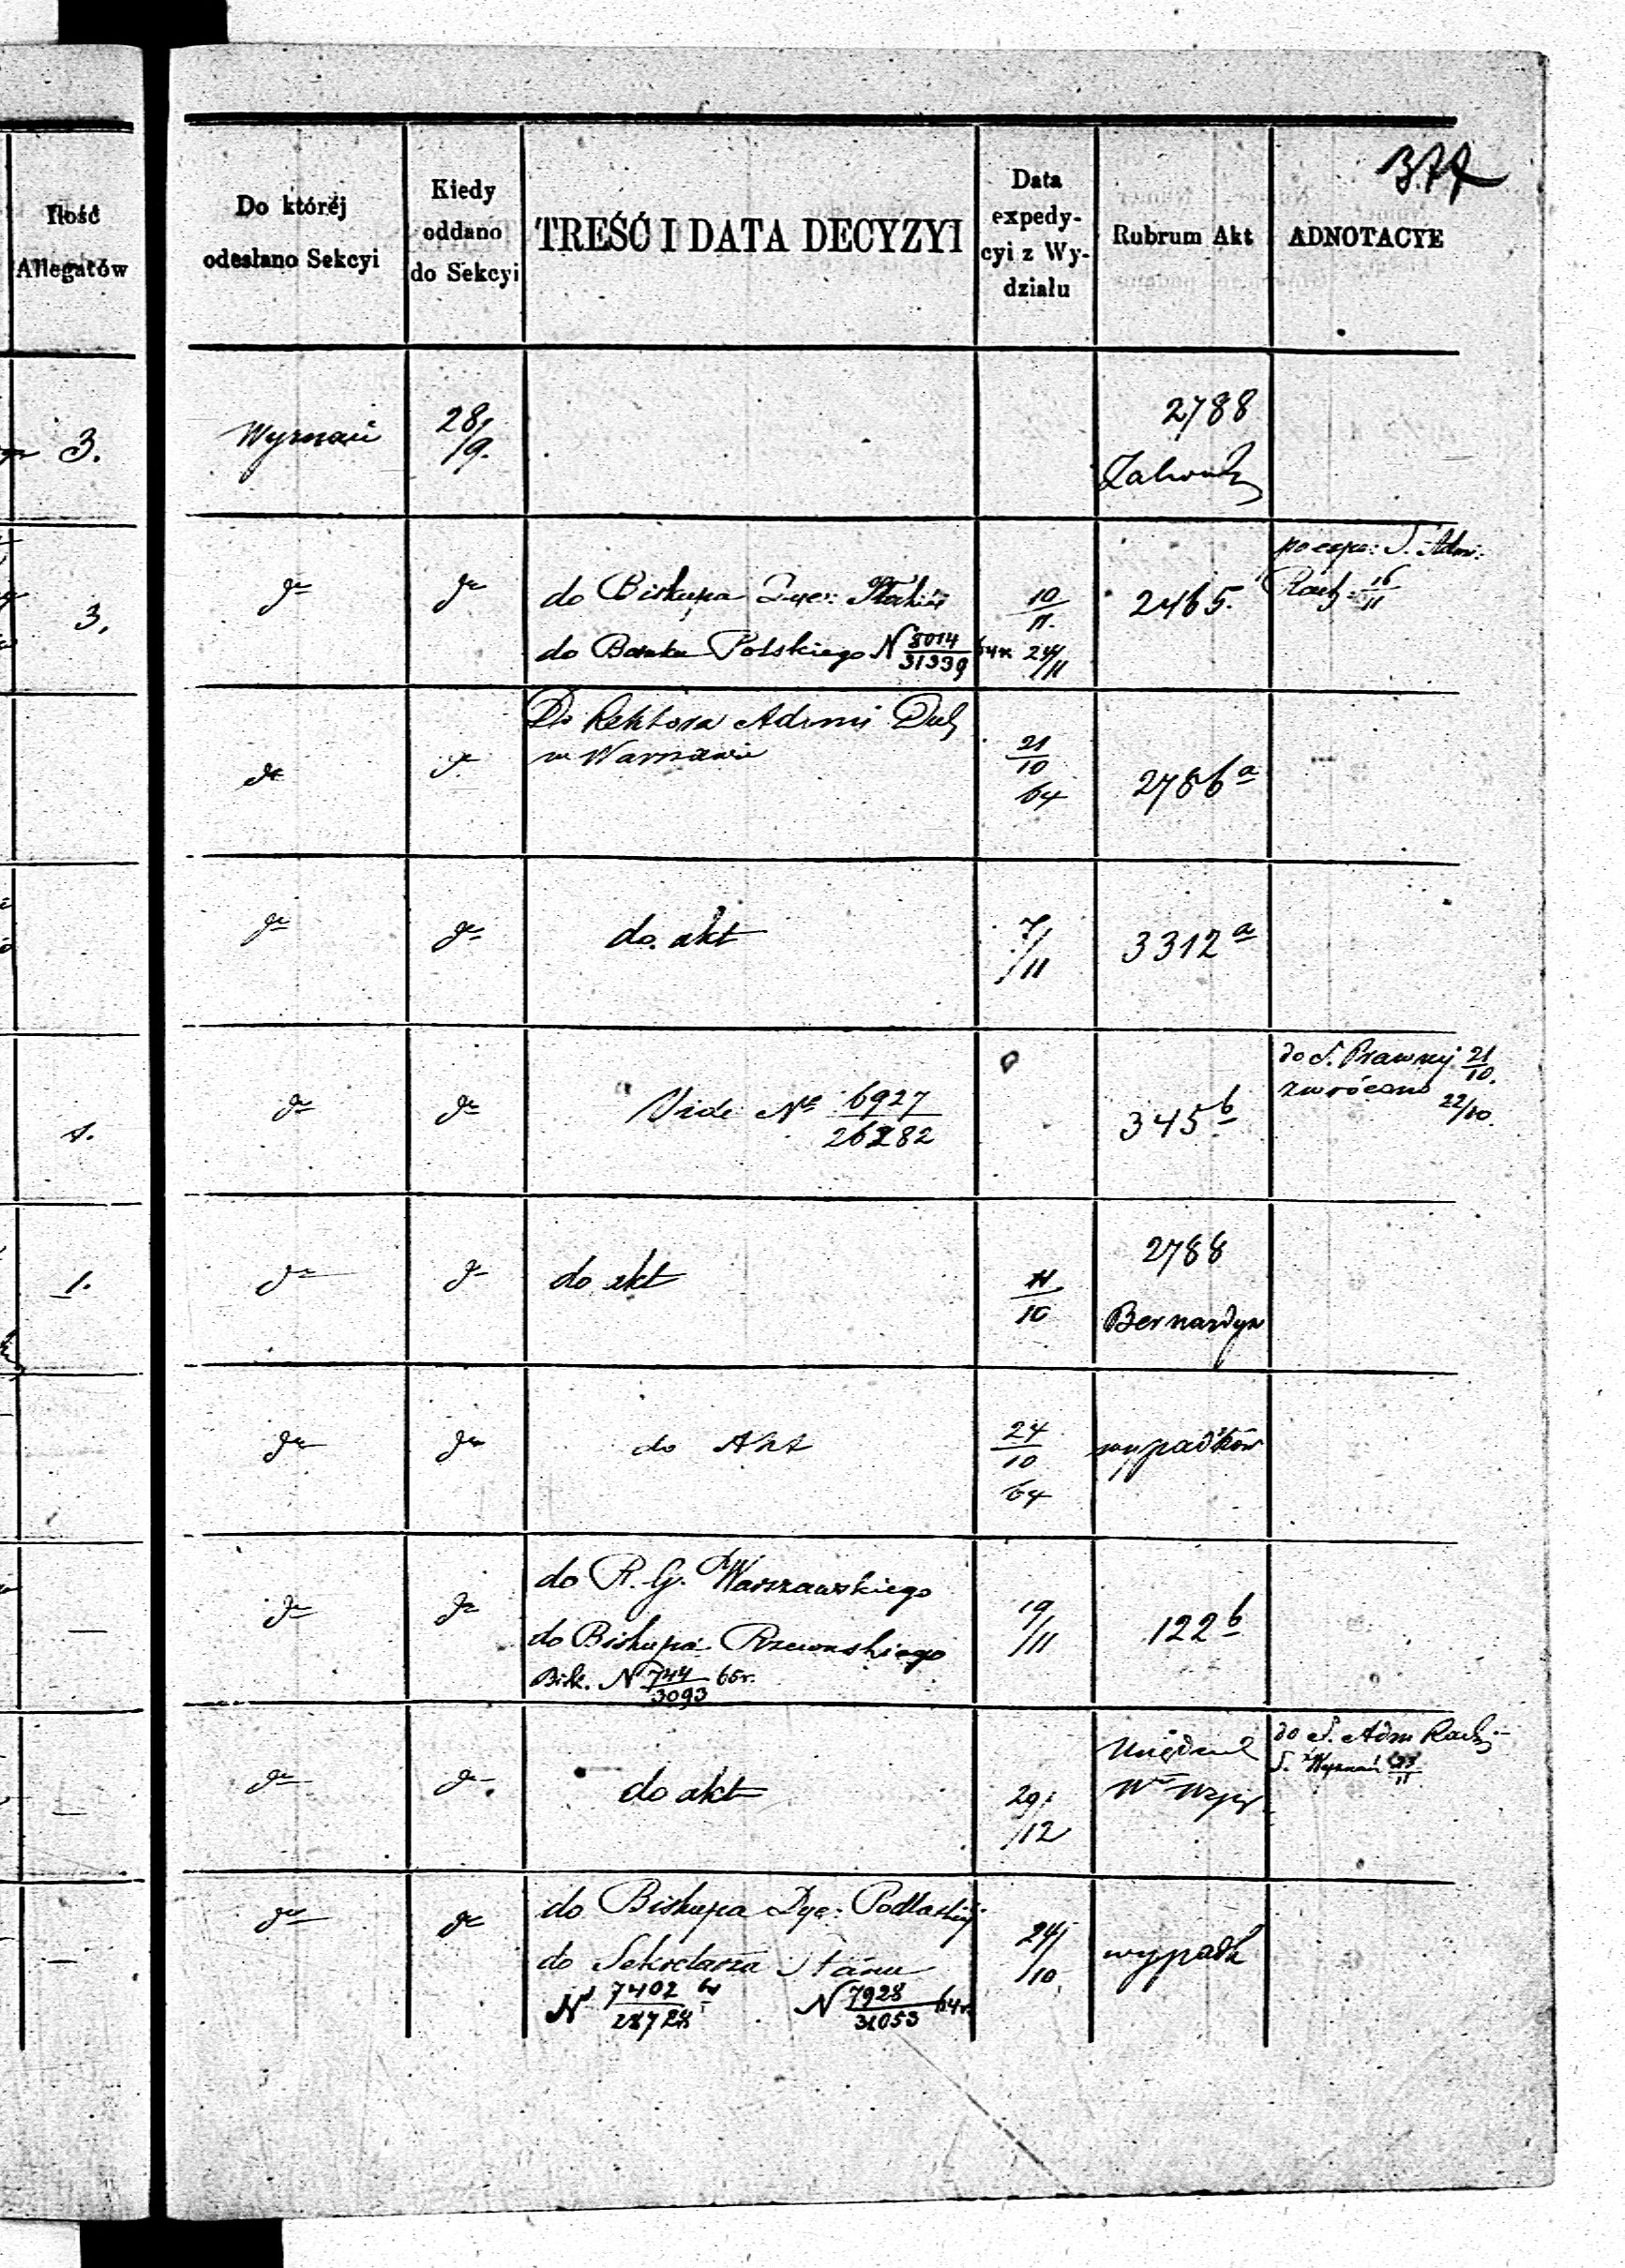 377
Ilość
Allegatów
Do któréj
odesłano Sekcyi
Kiedy
oddano
do Sekcyi
TREŚĆ I DATA DECYZYI
Data
expedy-
cyi z Wy-
działu
Rubrum Akt
ADNOTACYE
3.
Wyznań
28/9.
2788
3.
do
do
do Biskupa Dyec:
do Banku Polskiego N 8014/31339 64r
10/11.
24/11
2465.
po expe: S. Adm:
Rach: 16/11
do
do
Do Rektora Duch
w Warszawie
21/10
64
2786 a
do
do
do akt
7/11
3312 a
1.
do
do
Vide No 6927/26282
345 b
do S. Prawnej 21/10.
zwrócono 22/10.
1.
do
do
do akt
11/10
2788
Bernardyn
do
do
do Akt
24/10
64
wypadków
—
do
do
do R. G. Warszawskiego
do Biskupa Rzewuskiego
N 744/3093 65r.
19/11
122 b
—
do
do
do akt
29/12
do S. Adm Rach
S. Wyznań 23/11
—
do
do
do Biskupa Dye: Podlaskiej
do Sekretarza Stanu
N 7402/28728 64
N 7928/31053 64r
24/10
wypadk